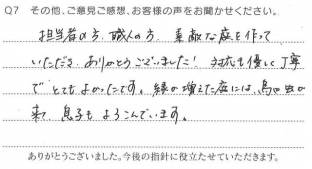 Q7 その他、ご意見ご感想、お客様の声をお聞かせください。
担当者の方、職人の方、素敵な庭を作って
いただき、ありがとうございました! 対応も優しく丁寧
でとてもよかったです。緑の増えた庭には、鳥や虫が
来て、息子もよろこんでいます。
ありがとうございました。今後の指針に役立たせていただきます。